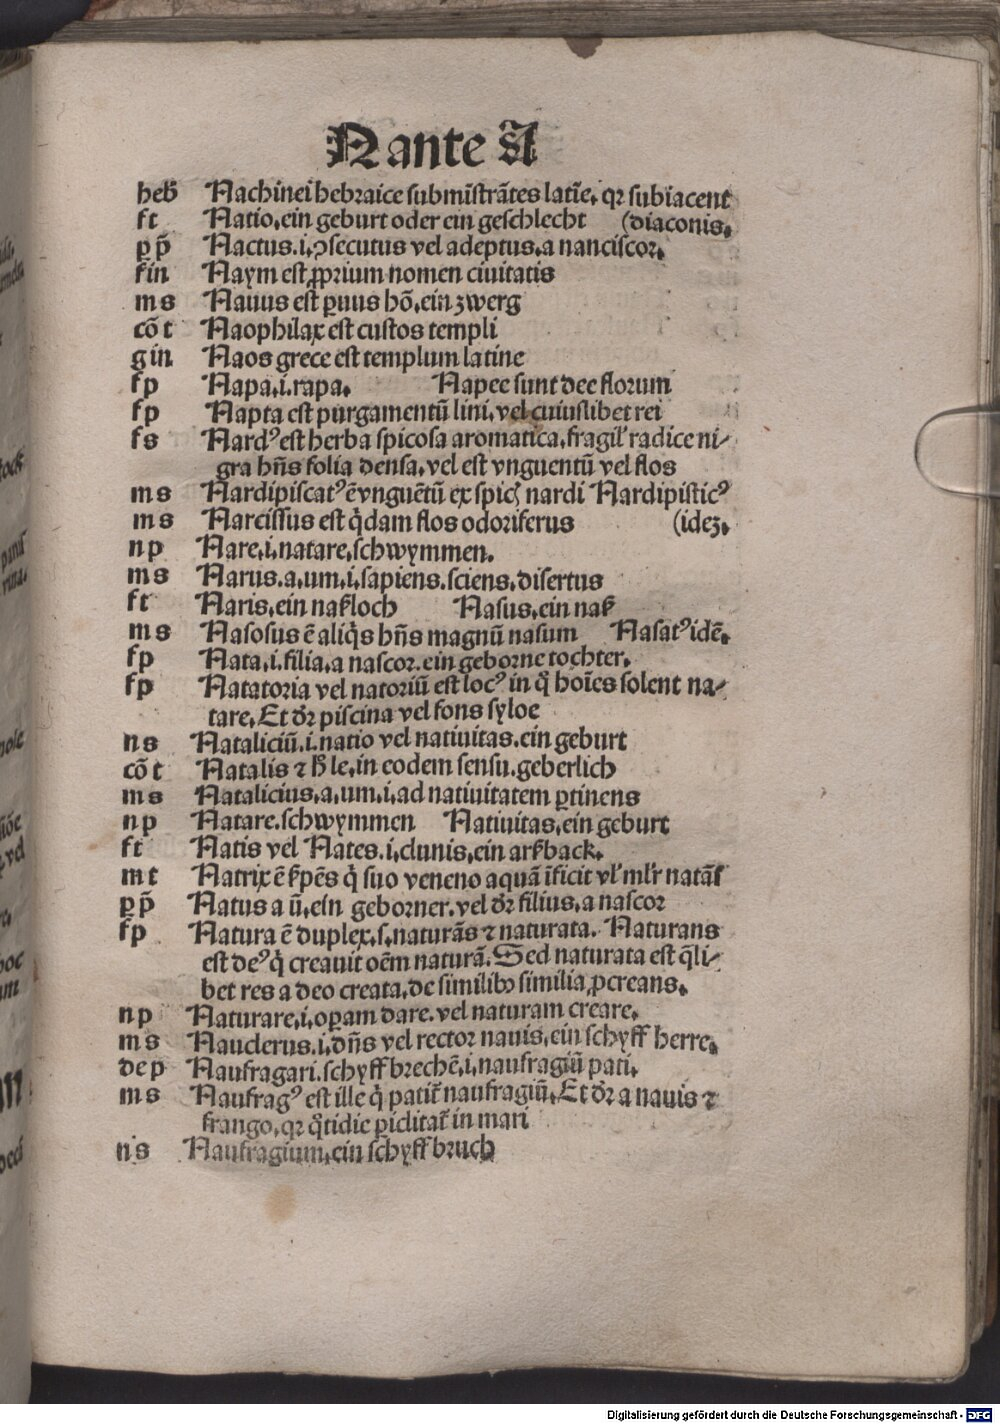 N ante A
heb̄ Nachinei hebraice subminīstrātes latīe. qr subiacent
ft Natio, ein geburt oder ein geschlecht (diaconis.
p̱ p̄ Nactus.i.ꝯsecutus vel adeptus.a nanciscor.
kin Naym est ꝓprium nomen ciuitatis
m s Nauus est ꝑuus hō, ein zwerg
cō t Naophilax est custos templi
g in Naos grece est templum latine
fp Napa.i.rapa. Napee sunt dee florum
fp Napta est purgamentū lini, vel cuiuslibet rei
fs Nardꝰ est herba spicosa aromatica, fragil' radice ni⸗
gra hn̄s folia densa, vel est vnguentū vel flos
m s Nardipiscatꝰ ē vnguētū ex spicꝭ nardi Nardipisticꝰ
m s Narcissus est q̇dam flos odoriferus (idez.
n p Nare.i.natare, schwymmen.
m s Narus.a.um.i.sapiens.sciens.disertus
ft Naris, ein naßloch Nasus, ein naß
m s Nasosus ē aliq̇s hn̄s magnū nasum Nasatꝰ idē.
fp Nata.i.filia.a nascor.ein geborne tochter.
fp Natatoria vel natoriū est locꝰ in q̊ hoīes solent na⸗
tare. Et dr̄ piscina vel fons syloe
n s Nataliciū.i.natio vel natiuitas.ein geburt
cō t Natalis ⁊ h̄ le, in eodem sensu.geberlich
m s Natalicius.a.um.i.ad natiuitatem ꝑtinens
n p Natare.schwymmen Natiuitas, ein geburt
ft Natis vel Nates.i.clunis, ein arßback.
m t Natrix ē s̄pēs q̇ suo veneno aquā īficit vl' ml'r natās
p̱ p̄ Natus a ū, ein geborner.vel dr̄ filius.a nascor
fp Natura ē duplex.s.naturās ⁊ naturata. Naturans
est deꝰ q̇ creauit oēm naturā. Sed naturata est q̄li⸗
bet res a deo creata, de similibꝰ similia ꝓcreans.
n p Naturare.i.oꝑam dare.vel naturam creare.
m s Nauclerus.i.dn̄s vel rector nauis, ein schyff herre.
de p Naufragari.schyff brechē.i.naufragiū pati.
m s Naufragꝰ est ille q̇ patit̄ naufragiū. Et dr̄ a nauis ⁊
frango, qr q̊tidie ꝑiclitat̄ in mari
n s Naufragium, ein schyff bruch
Digitalisierung gefördert durch die Deutsche Forschungsgemeinschaft - DFG